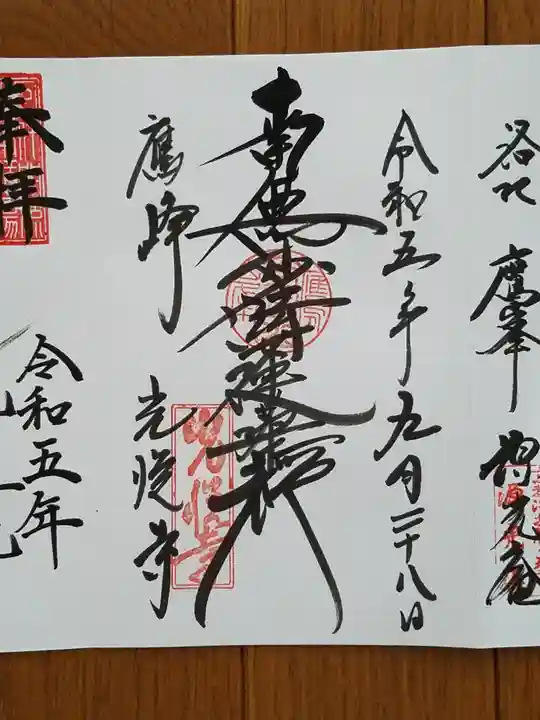 洛北 鷹峯 源光庵
令和五年九月二十八日
南無妙法蓮華経
鷹峰 光悦寺
奉拝
令和五年